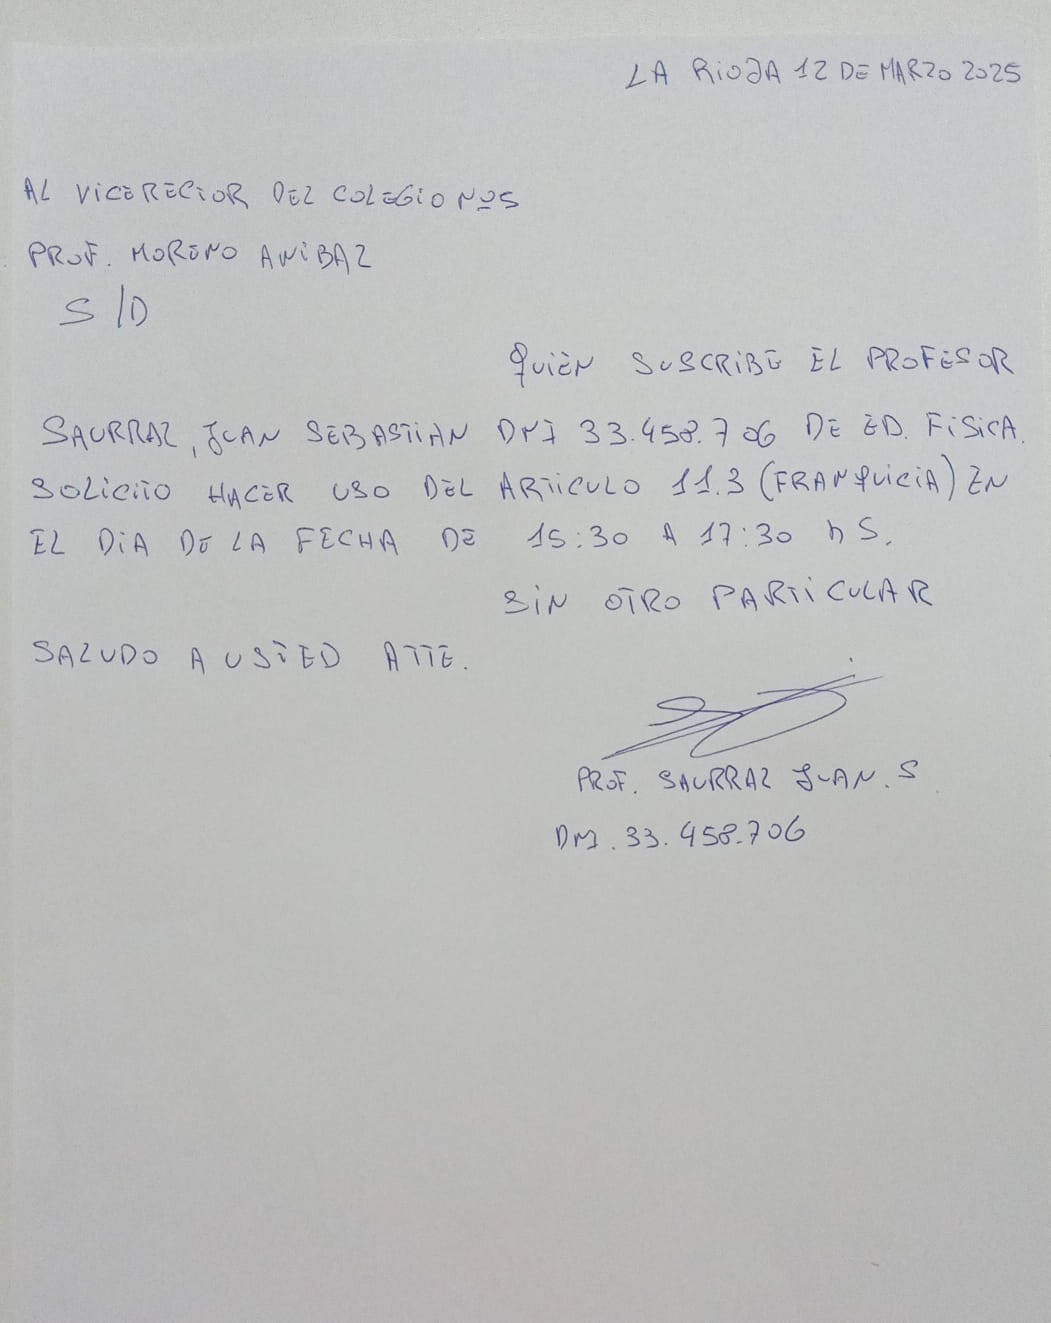 LA RIOJA 12 DE MARZO 2025
AL VICERECTOR DEL COLEGIO Nº5
PROF. MORENO ANIBAL
S/D
QUIÉN SUSCRIBE EL PROFESOR
SAURRAL, JUAN SEBASTIAN DNI 33.458.706 DE ED. FISICA.
SOLICITO HACER USO DEL ARTICULO 11.3 (FRANQUICIA) EN
EL DIA DE LA FECHA DE 15:30 A 17:30 hS.
SIN OTRO PARTICULAR
SALUDO A USTED ATTE.
PROF. SAURRAL JUAN. S
DNI. 33.458.706